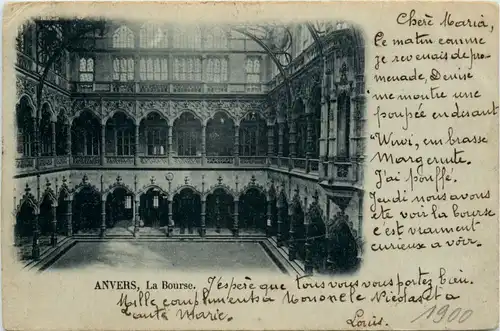 Chère Maria,
Ce matin comme
je revenais de pro-
menade, Denise
me montre une
poupée en disant
Wuvi, embrasse
Marguerite.
J'ai pouffé.
Jeudi nous avons
été voir la Bourse
c'est vraiment
curieux a voir.
ANVERS, La Bourse.
J'espère que tous vous vous portez bien.
Mille compliments à Mononcle Nicolas et a
tante Marie.
Louis.
1900